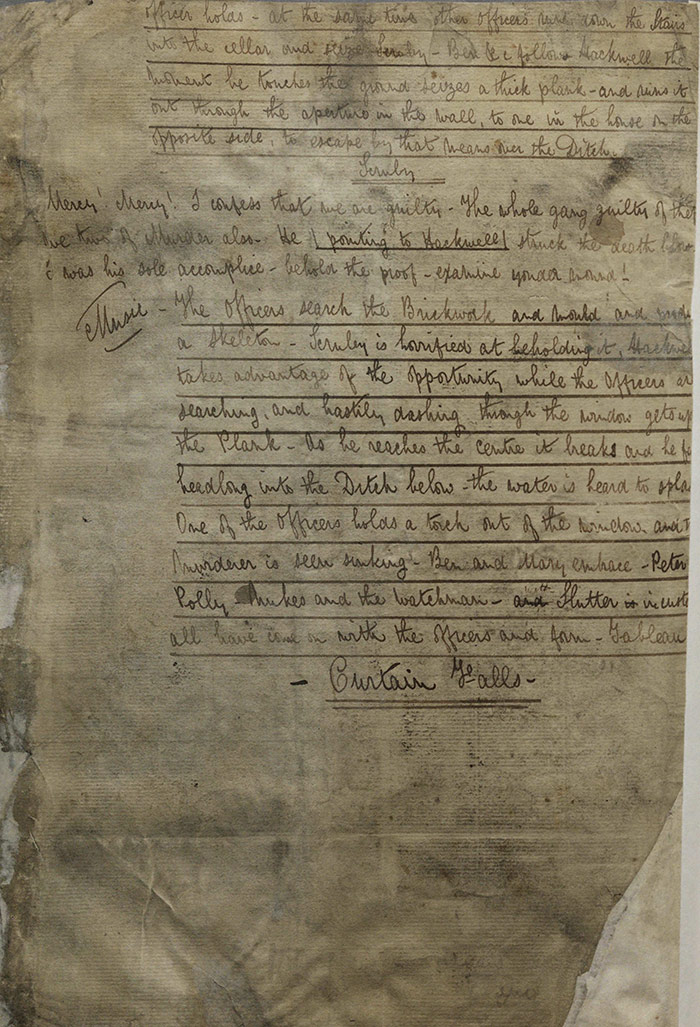 officer holds - at the same time other officers run down the Stairs
into the cellar and seize Scruby - Ben &c follow Hackwell the
moment he touches the ground seizes a thick plank - and runs it
out through the aperture in the wall, to one in the house on the
opposite side, to escape by that means over the Ditch.
Scruby
Mercy! Mercy! I confess that we are guilty - The whole gang guilty of
we two of Murder also - He (pointing to Hackwell) struck the death blow
I was his sole accomplice - behold the proof - examine yonder mound!
Music - The Officers search the Brickwork and mould and
a skeleton - Scruby is horrified at beholding it, Hackwel
takes advantage of the opportunity while the Officers ar
searching, and hastily dashing through the window gets up
the Plank - As he reaches the centre it breaks and he fa
headlong into the Ditch below - the water is heard to spla
One of the Officers holds a torch out of the window and t
Murderer is seen sinking - Ben and Mary embrace - Peter
Polly - and the Watchman - and Slutter is in custo
all have come on with the officers and form - Tableau
- Curtain Falls -